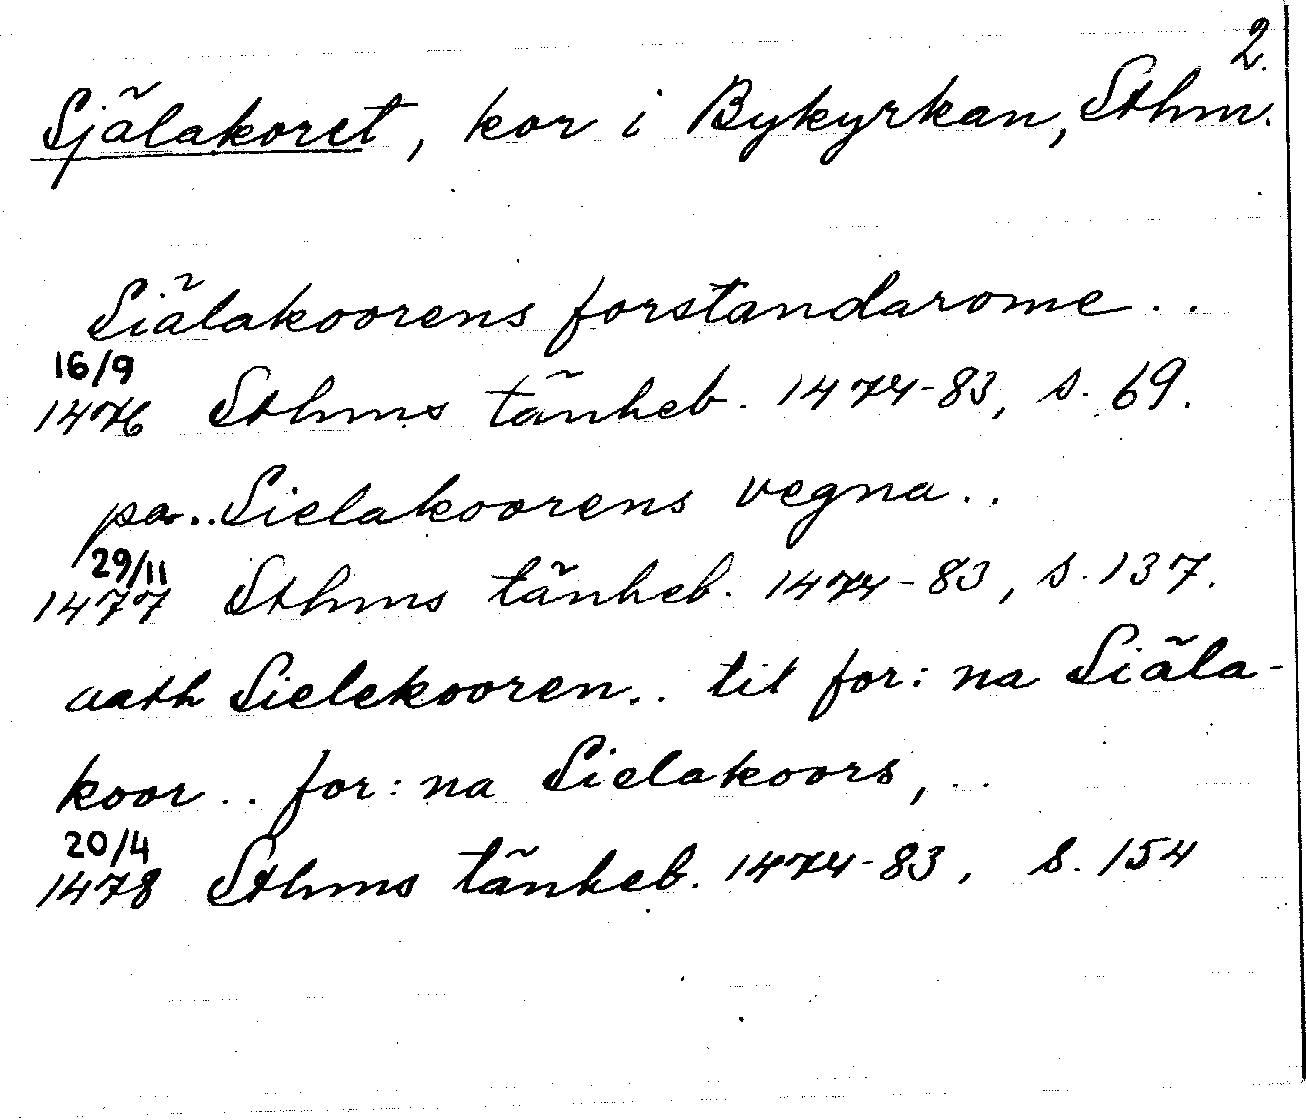 2.
Själakoret, kor i Bykyrkan, Sthm.
Siälakoorens forstandarome..
16/9
1476 Sthms tänkeb. 1474-83, s. 69.
pa.. Sielakoorens vegna..
29/11
1477 Sthms tänkeb. 1474-83, s. 137.
aath Sielekooren.. til for: na Siäla-
koor.. for: na Sielakoors,..
20/4
1478 Sthms tänkeb. 1474-83, s. 154